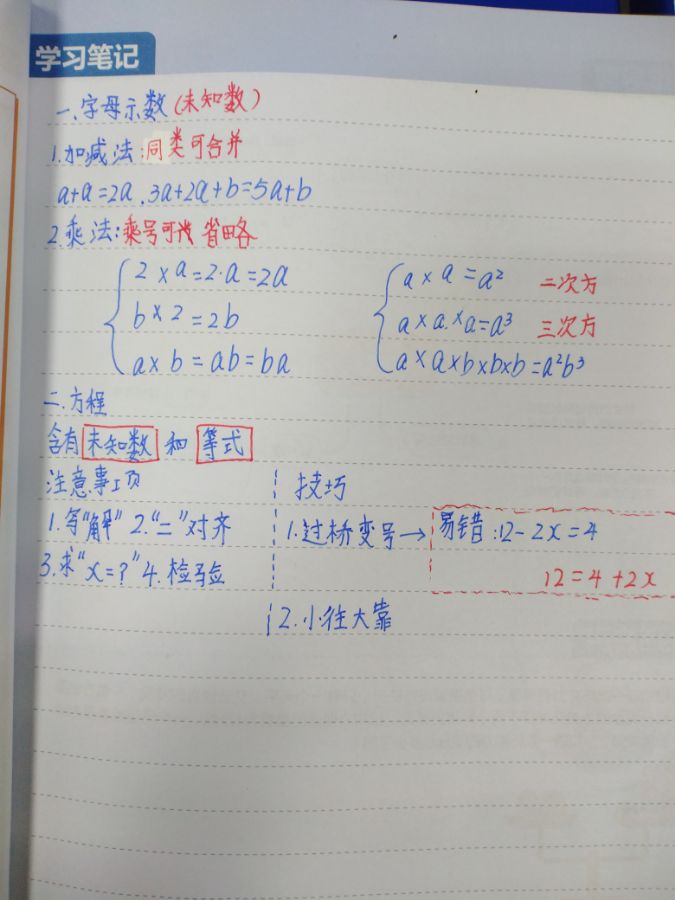 学习笔记
一、字母示数(未知数)
1.加减法:同类可合并
a+a=2a、3a+2a+b=5a+b
2.乘法:乘号可省略
2×a=2·a=2a
b×2=2b
a×b=ab=ba
a×a=a² 二次方
a×a×a=a³ 三次方
a×a×b×b×b=a²b³
二.方程
含有未知数和等式
注意事项
1.写“解” 2.“=”对齐
3.求“x=?” 4.检验
技巧
1.过桥变号→易错:12-2x=4
12=4+2x
2.小往大靠